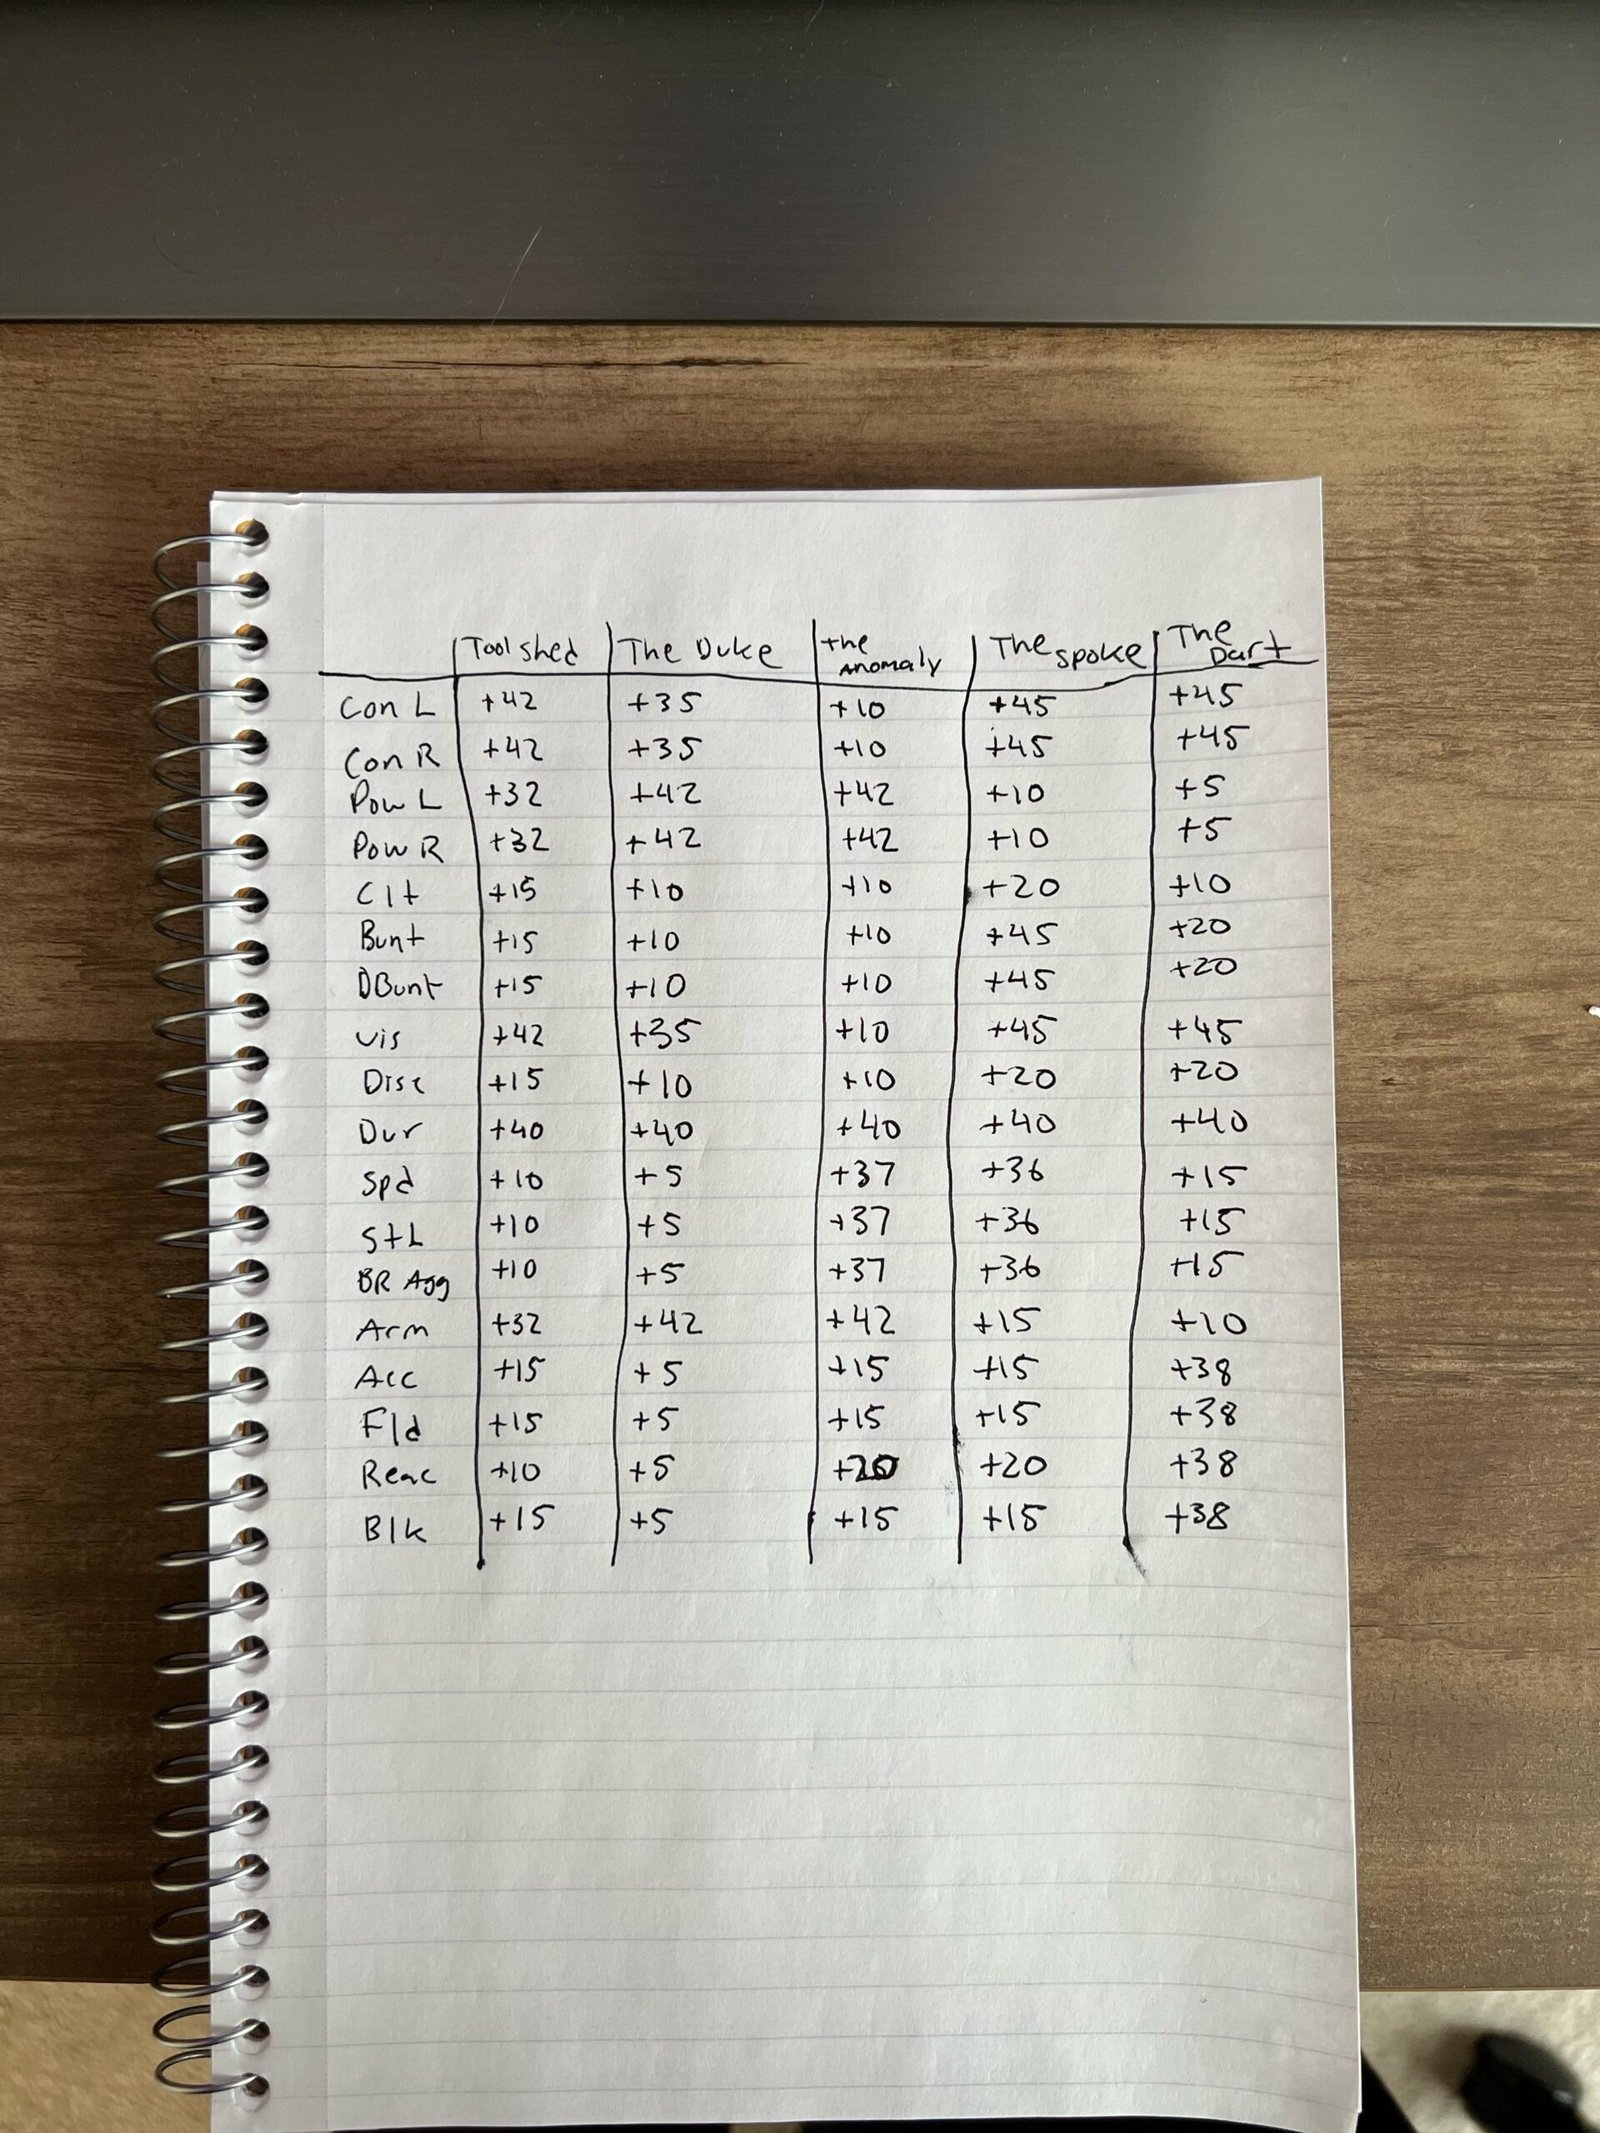 Toolshed The Duke the Anomaly The spoke The Dart
Con L +42 +35 +10 +45 +45
Con R +42 +35 +10 +45 +45
Pow L +32 +42 +42 +10 +5
Pow R +32 +42 +42 +10 +5
Clt +15 +10 +10 +20 +10
Bunt +15 +10 +10 +45 +20
DBunt +15 +10 +10 +45 +20
Vis +42 +35 +10 +45 +45
Disc +15 +10 +10 +20 +20
Dur +40 +40 +40 +40 +40
Spd +10 +5 +37 +36 +15
StL +10 +5 +37 +36 +15
BR Agg +10 +5 +37 +36 +15
Arm +32 +42 +42 +15 +10
Acc +15 +5 +15 +15 +38
Fld +15 +5 +15 +15 +38
Reac +10 +5 +20 +20 +38
Blk +15 +5 +15 +15 +38